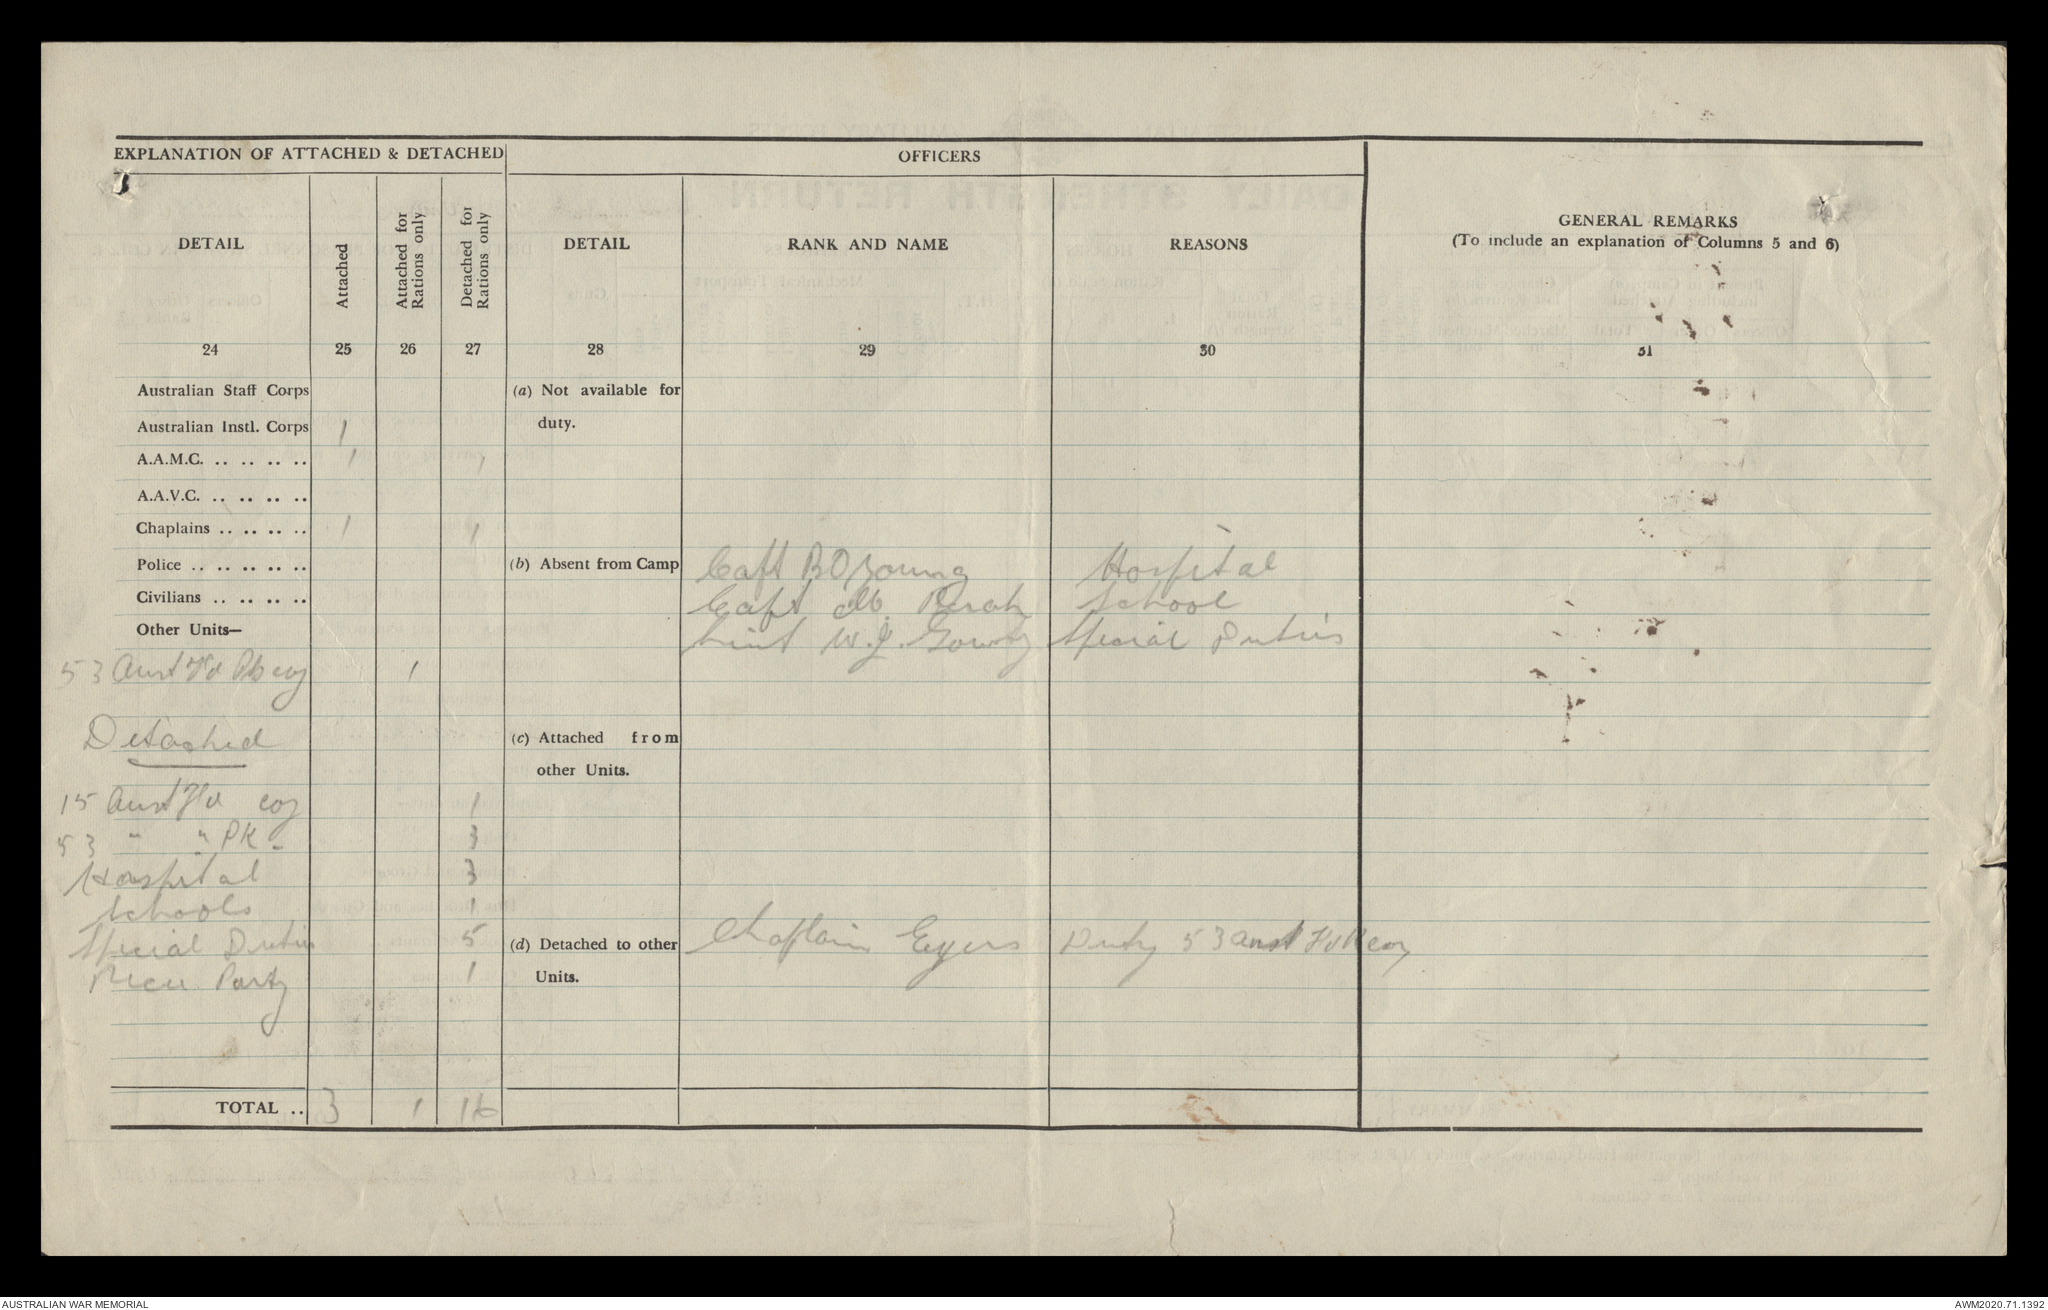 EXPLANATION OF ATTACHED & DETACHED
OFFICERS
GENERAL REMARKS
(To include an explanation of Columns 5 and 6)
DETAIL
Attached
Attached for Rations only
Detached for Rations only
DETAIL
RANK AND NAME
REASONS
24 25 26 27 28 29 30 31
Australian Staff Corps
(a) Not available for
Australian Instl. Corps 1
duty.
A.A.M.C. .. .. .. .. 1 1
A.A.V.C. .. .. .. ..
Chaplains .. .. .. .. 1 1
Police .. .. .. .. ..
(b) Absent from Camp Capt R O Young Hospital
Civilians .. .. .. .. Capt School
Other Units— Lieut W.J. Special Duties
53 Aust Fd Pk coy 1
Detached
(c) Attached from
other Units.
15 Aust Fd coy 1
53 " " PK. 3
Hospital 3
Schools 1
Special Duties 5
(d) Detached to other Chaplain Eyers Duty 53 Aust Fd Pk coy
Party 1
Units.
TOTAL .. 3 1 16
AUSTRALIAN WAR MEMORIAL
AWM2020.71.1392